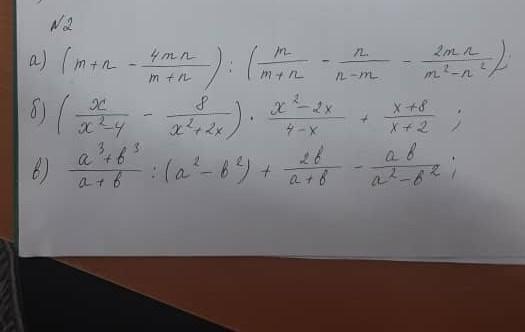 №2
а) (m+n - \frac{4mn}{m+n}) : (\frac{m}{m+n} - \frac{n}{n-m} - \frac{2mn}{m^2-n^2});
б) (\frac{x}{x^2-4} - \frac{8}{x^2+2x}) · \frac{x^2-2x}{4-x} + \frac{x+8}{x+2} ;
в) \frac{a^3+b^3}{a+b} : (a^2-b^2) + \frac{2b}{a+b} - \frac{ab}{a^2-b^2} ;